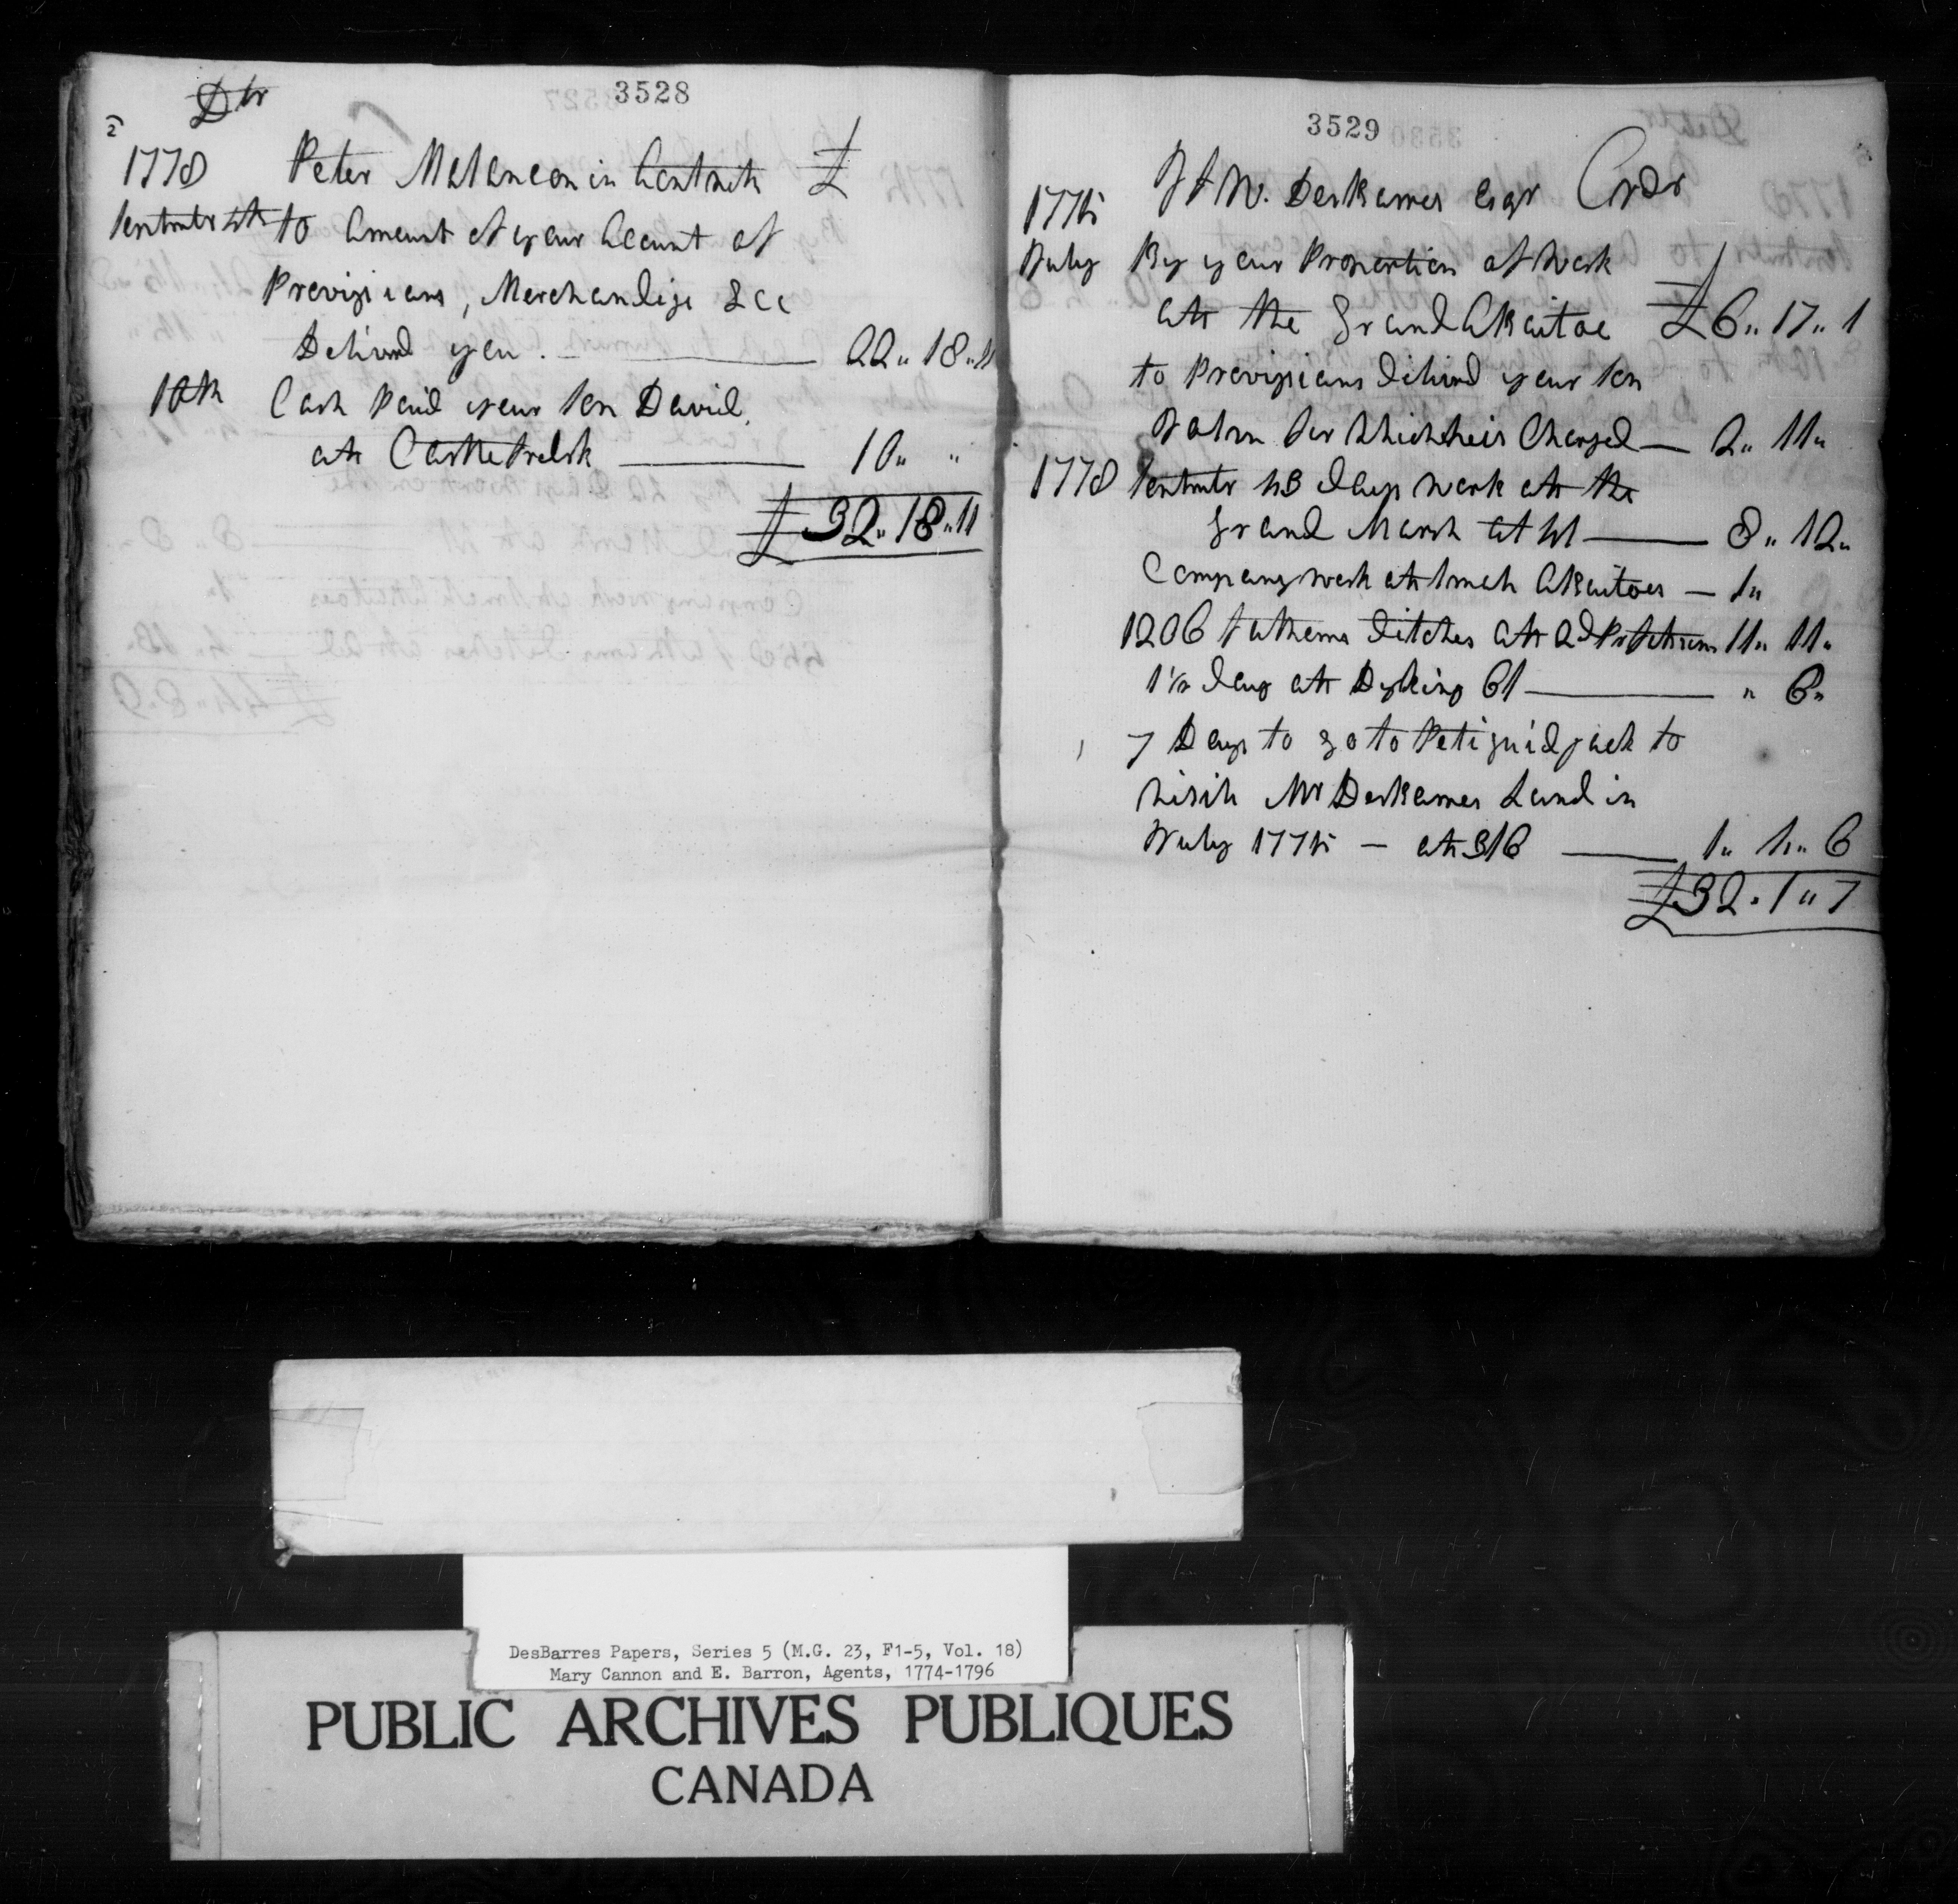 3528
Dtr
2
1778 Peter Melancon in Contrack £
Septmbr 4th to Amount of your Account of
Provizions, Merchandize &cc
Deliverd you. — 22"18"11
10th Cash Paid your Son David
att Castle Fredrk — 10" "
£32"18"11
3529
J F W. DesBarres Esqr Crdr
1775
July By your Proportion of Work
att the Grand Aboitoe £6"17"1
to Provizions deliverd your Son
John for which he is Charged — 2"11"
1778 Septmbr 43 days work att the
Grand Marsh at 4/ — 8"12"
Company work att Smal Aboitoes — 1"
1206 fathoms ditches att 2d Pr fathom 11"11"
1½ day att Dyking 6/ — " 6"
7 Days to go to Petiquidyack to
visit Mr DesBarres Land in
July 1775 — att 3/6 — 1"4"6
£32"1"7
DesBarres Papers, Series 5 (M.G. 23, F1-5, Vol. 18)
Mary Cannon and E. Barron, Agents, 1774-1796
PUBLIC ARCHIVES PUBLIQUES
CANADA